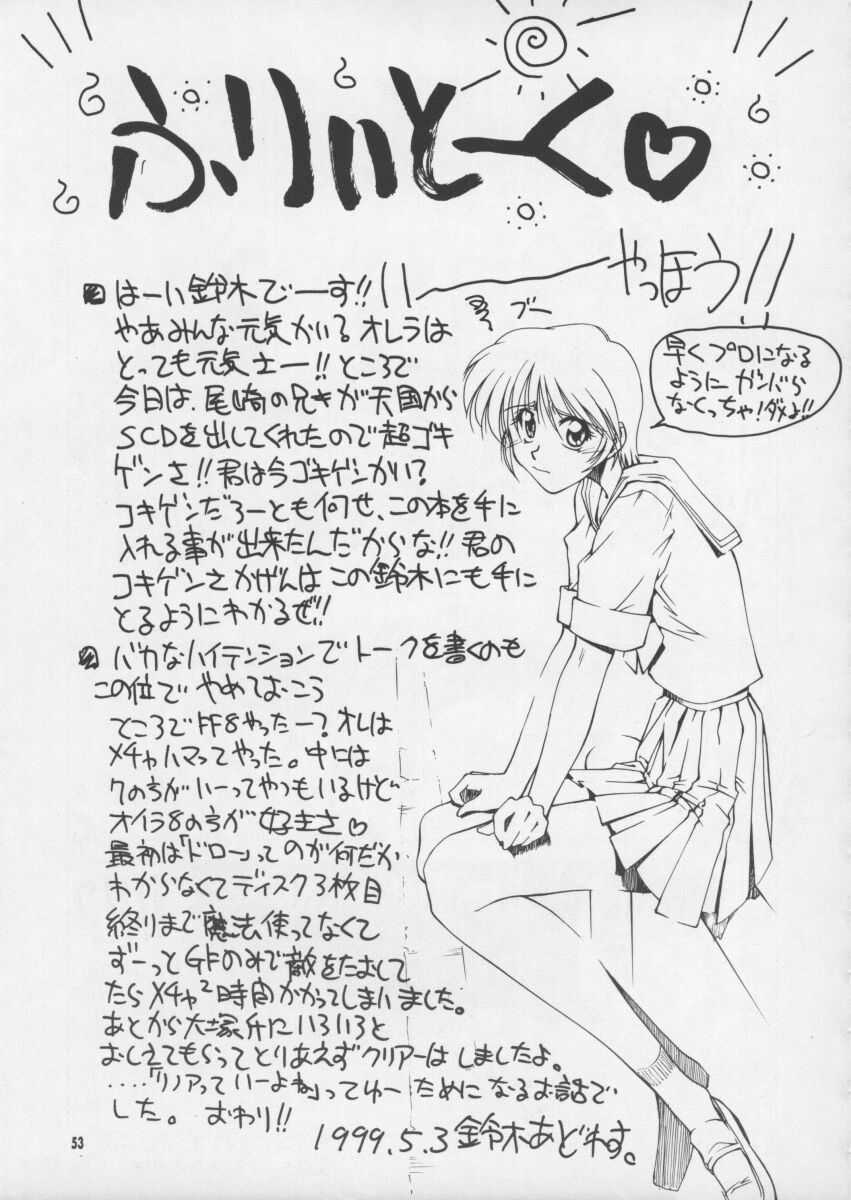 ふりぃとーく♡
やっほう!!
ブー
早くプロになる
ようにガンバら
なくっちゃ!ダメよ!!
はーい鈴木でーす!!
やあみんな元気かい?オレラは
とっても元気さー!!ところで
今日は、尾崎の兄きが天国から
SCDを出してくれたので超ゴキ
ゲンさ!!君は今ゴキゲンかい?
コキゲンだろーとも何せ、この本を手に
入れる事が出来たんだからな!!君の
コキゲンさかげんはこの鈴木にも手に
とるようにわかるぜ!!
バカなハイテンションでトークを書くのも
この位でやめておこう
ところでFF8やったー?オレは
メチャハマってやった。中には
7のちがいーってやつもいるけど
オイラ8のちが好きさ♡
最初は「ドロー」ってのが何だか
わからなくてディスク3枚目
終りまで魔法使ってなくて
ずーっとGFのみで敵をたおして
たらメチャ²時間かかってしまいました。
あとから大塚氏にいろいろと
おしえてもらってとりあえずクリアーはしましたよ。
‥‥「リノアっていーよね」ってゆーためになるお話で
した。おわり!!
1999.5.3鈴木あどれす。
53